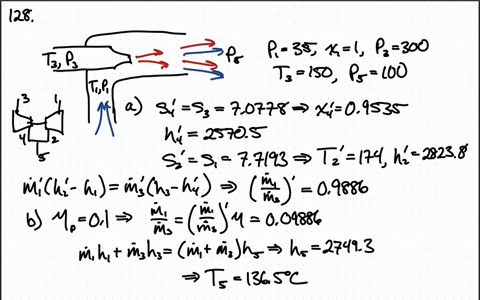 128.
T₃, P₃
P₅
T₁, P₁
P₁=35, x₁=1, P₃=300
T₃=150, P₅=100
3 1
4 2
5
a) s₄' = s₃ = 7.0778 ⇒ x₄' = 0.9535
h₄' = 2570.5
s₂' = s₁ = 7.7193 ⇒ T₂' = 174, h₂' = 2823.8
ṁ₁'(h₂' - h₁) = ṁ₃'(h₃ - h₄') ⇒ (ṁ₁/ṁ₃)' = 0.9886
b) η_p = 0.1 ⇒ ṁ₁/ṁ₃ = (ṁ₁/ṁ₃)' η = 0.09886
ṁ₁h₁ + ṁ₃h₃ = (ṁ₁ + ṁ₃)h₅ ⇒ h₅ = 2749.3
⇒ T₅ = 136.5°C